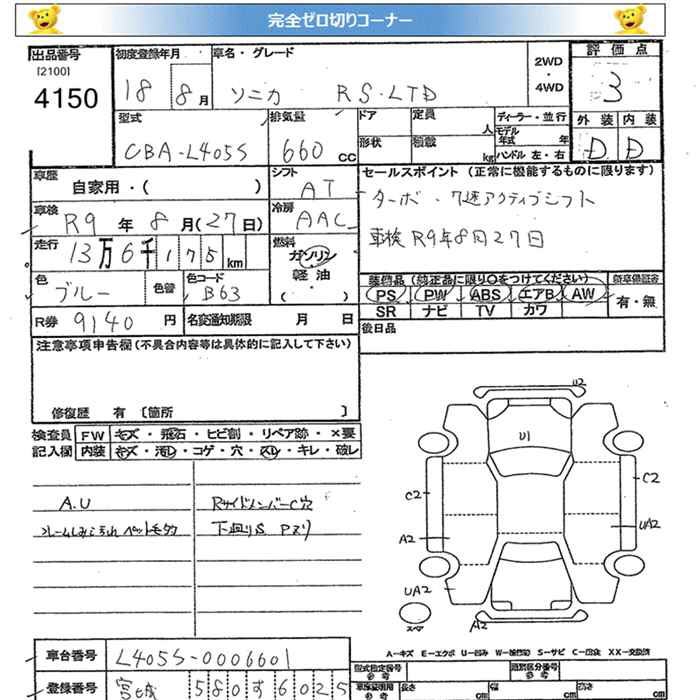 完全ゼロ切りコーナー
出品番号
[2100]
4150
初度登録年月
18 8月
車名・グレード
ソニカ RS・LTD
2WD
・
4WD
評価点
3
型式
CBA-L405S
排気量
660 CC
ドア
定員
人
形状
積載
kg
ディーラー・並行
モデル年式 年
ハンドル 左・右
外装 内装
D D
車歴
自家用・( )
シフト
AT
セールスポイント (正常に機能するものに限ります)
ターボ・7速アクティブシフト
車検 R9年8月27日
車検
R9年8月(27日)
冷房
AAC
走行
13万6千175km
燃料
ガソリン
軽油
( )
色
ブルー
色替
色コード
B63
装備品 (純正品に限り○をつけてください)
新車保証書
PS PW ABS エアB AW
有・無
SR ナビ TV カワ
R券 9140円
名変通知期限 月 日
後日品
注意事項申告欄 (不具合内容等は具体的に記入して下さい)
修復歴 有 [箇所 ]
検査員記入欄
FW キズ・飛石・ヒビ割・リペア跡・×要
内装 キズ・汚れ・コゲ・穴・スレ・キレ・破レ
A.U
RサイドメンバーC穴
下廻りS Pズリ
U2
U1
C2
C2
A2
UA2
UA2
スペア
A2
A-キズ E-エクボ U-凹み W-補修跡 S-サビ C-腐食 XX-交換済
車台番号
L405S-0006601
登録番号
宮城 580 す 6025
型式指定番号
参考
類別区分番号
参考
長さ cm
幅 cm
高さ cm